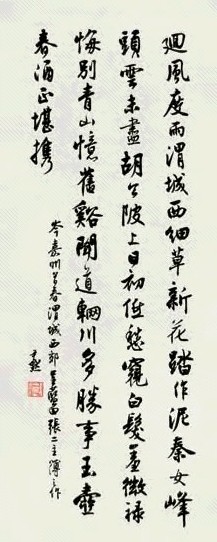 廻風度雨渭城西細草新花踏作泥秦女峰
頭雲未盡胡公陂上日初低愁窺白髮羞微祿
悔別青山憶舊谿聞道輞川多勝事玉壺
春酒正堪携
岑嘉州首春渭城西郊呈藍田張二主簿之作
尹默